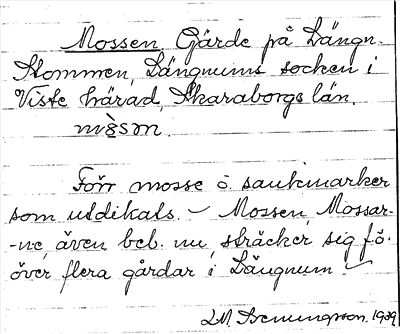 Mossen. Gärde på Längn.
Stommen, Längnums socken i
Viste härad, Skaraborgs län.
mɷ̀sɔn.
Förr mosse o. sankmarker
som utdikats. – Mossen, Mossar-
-ne, även beb. nu, sträcker sig fö.
över flera gårdar i Längnum –
1939